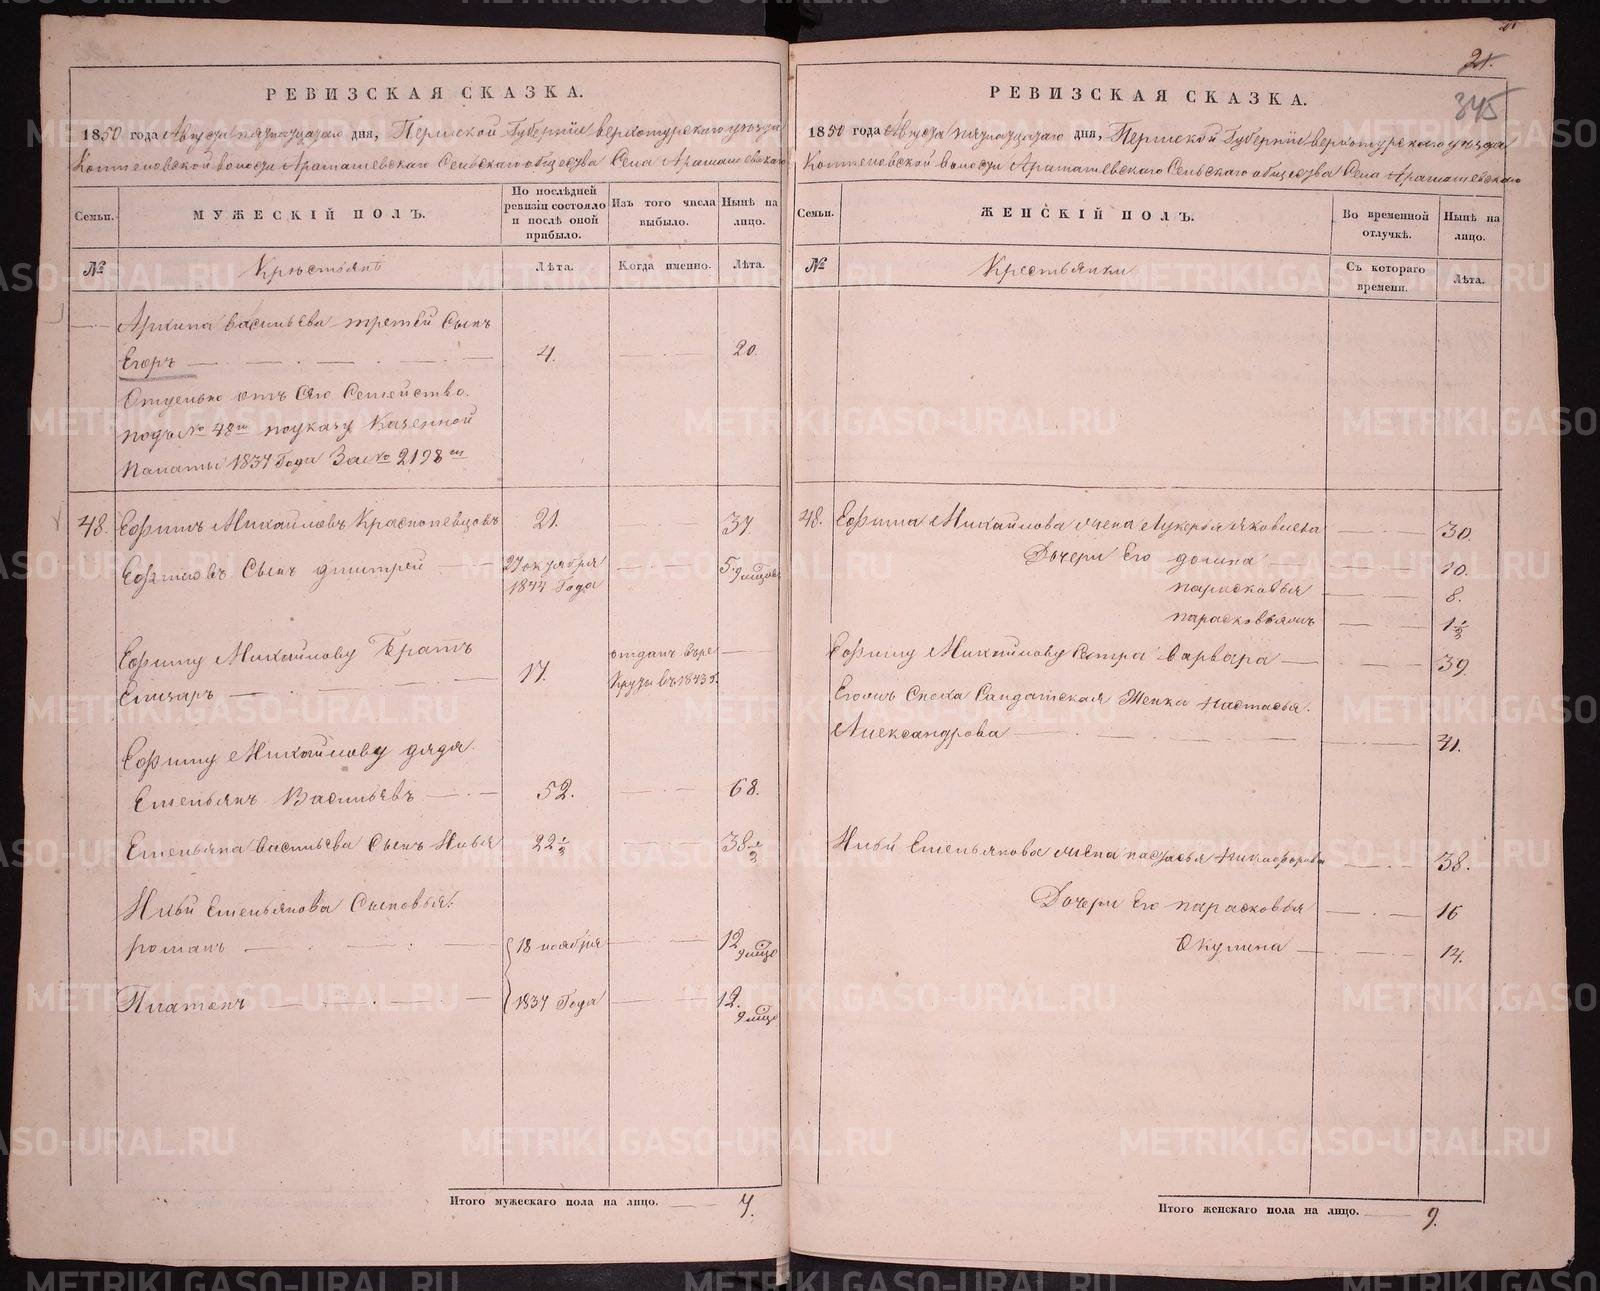 21.
345
РЕВИЗСКАЯ СКАЗКА.
1850 года Августа пятнадцатаго дня, Пермской Губернiи верхотурскаго уѣзда
Коптеловской волости Арамашевскаго Сельскаго общества Села Арамашевскаго
Семьи.
МУЖЕСКІЙ ПОЛЪ.
По послѣдней ревизіи состояло и послѣ оной прибыло.
Изъ того числа выбыло.
Нынѣ на лицо.
№
Крестьянѣ
Лѣта.
Когда именно.
Лѣта.
Архипа васильева третей Сынъ
Егоръ 4. 20.
Отдельно отъ Сего Семейства
подъ № 48м поуказу Казенной
Палаты 1837 Года За № 2198м
48. Ефимъ Михайловъ Краснопевцовъ 21. 37.
Ефимовъ Сынъ дмитрей 27 октября 1844 Года 5. 9 мцовъ
Ефиму Михайлову Братъ
Елизаръ 17. отданъ въ рекруты въ 1843 г.
Ефиму Михайлову дядя
Емельянъ Васильевъ 52. 68.
Емельяна васильева Сынъ 22½ 38½
Емельянова Сыновья:
романъ 18 ноября 12 9 мцо
Платонъ 1837 Года 12. 9 мцо
Итого мужескаго пола на лицо. 7.
РЕВИЗСКАЯ СКАЗКА.
1850 года Августа пятнадцатаго дня, Пермской Губернiи верхотурскаго уѣзда
Коптеловской волости Арамашевскаго Сельскаго общества Села Арамашевскаго
Семьи.
ЖЕНСКІЙ ПОЛЪ.
Во временной отлучкѣ.
Нынѣ на лицо.
№
Крестьянки
Съ котораго времени.
Лѣта.
48. Ефима Михайлова жена Лукерья яковлева 30.
Дочери Его домна 10.
парасковья 8.
парасковья 1½
Ефиму Михайлову Сестра варвара 39.
Солдатская Женка Настасья
Александрова 41.
Емельянова жена настасья никифорова 38.
Дочери Его парасковья 16
Окулина 14.
Итого женскаго пола на лицо. 9.
METRIKI.GASO-URAL.RU